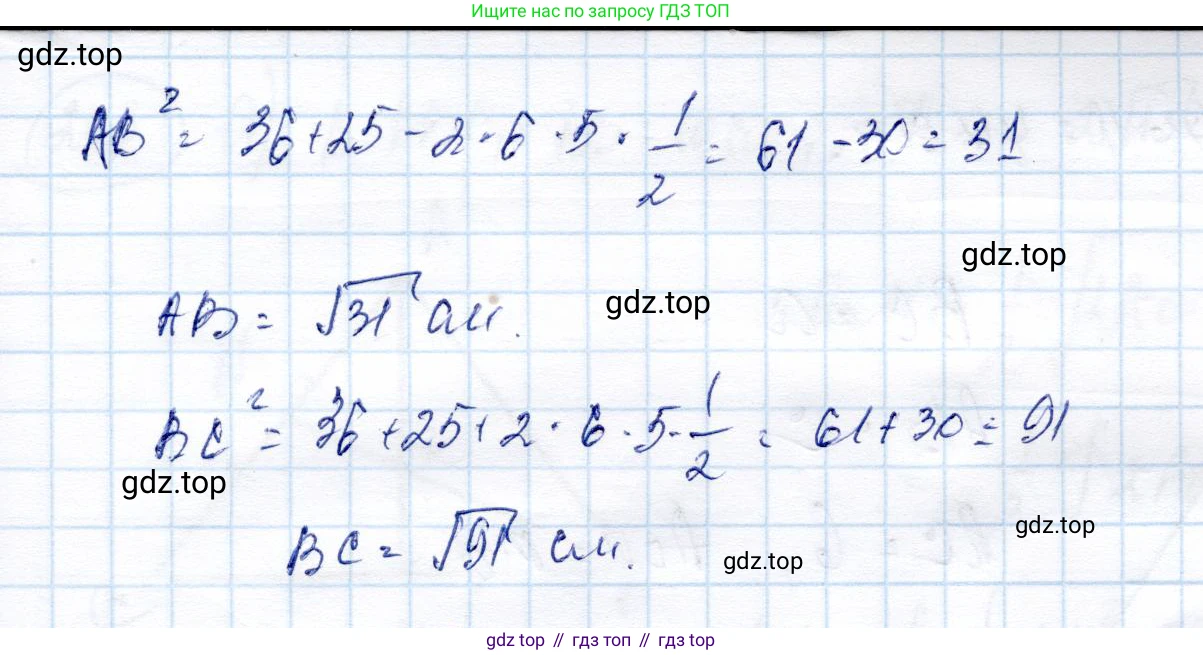 Ищите нас по запросу ГДЗ ТОП
gdz.top
AB² = 36 + 25 - 2 · 6 · 5 · 1/2 = 61 - 30 = 31
gdz.top
AB = √31 см.
gdz.top
BC² = 36 + 25 + 2 · 6 · 5 · 1/2 = 61 + 30 = 91
gdz.top
BC = √91 см.
gdz.top
gdz.top
gdz top // гдз топ // gdz top